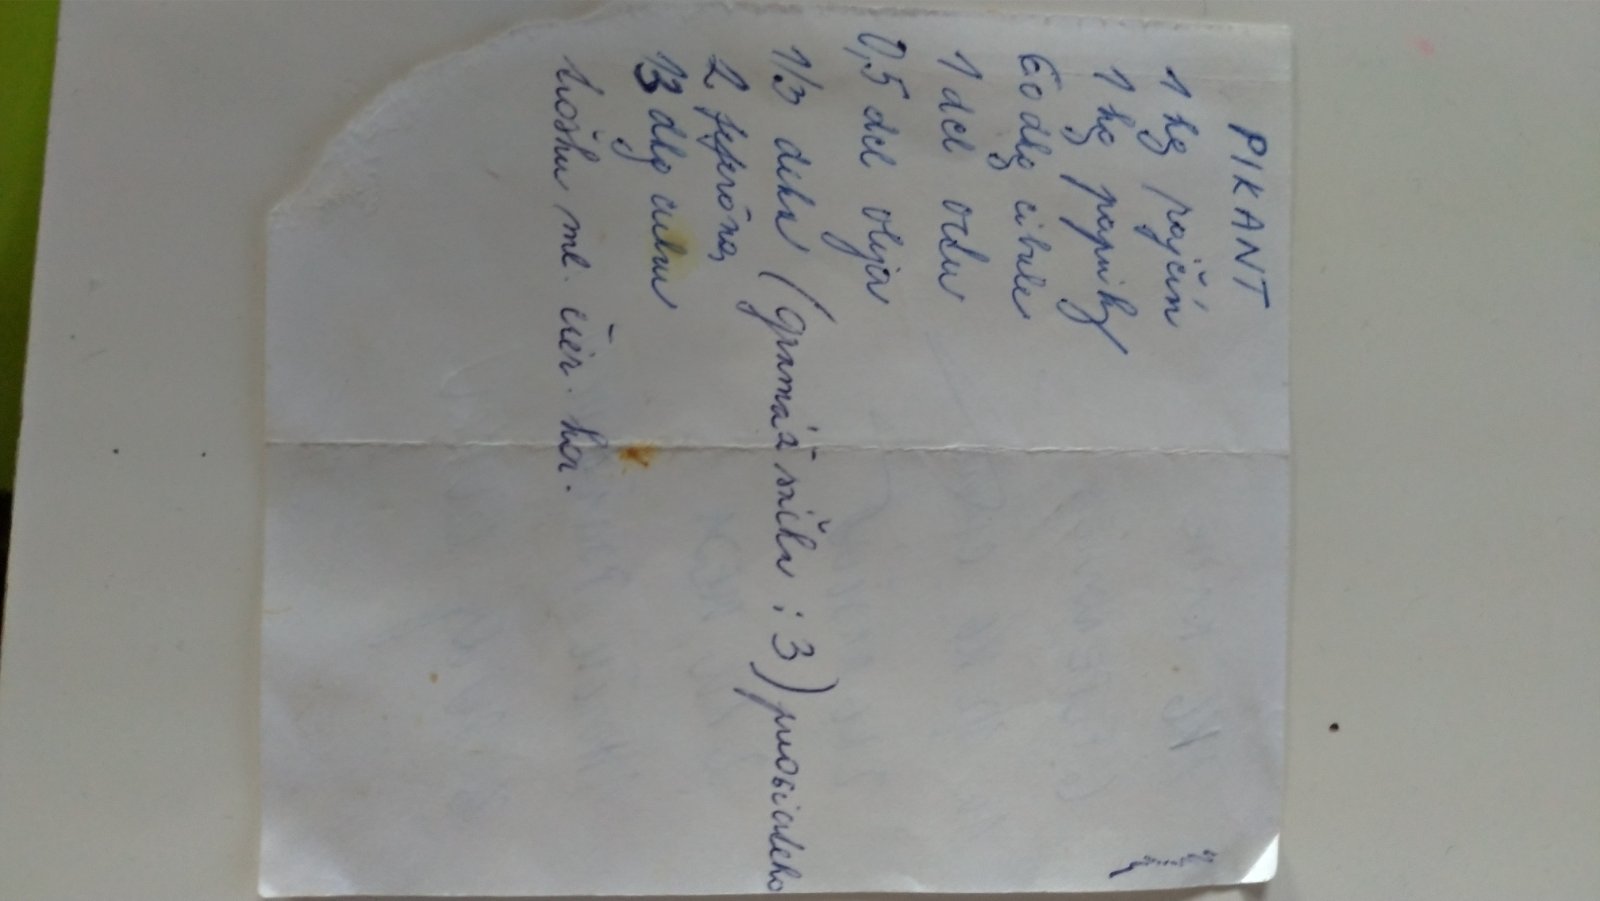 PIKANT
1 kg rajčín
1 kg papriky
60 dkg cibule
1 dcl octu
0,5 dcl oleja
1/3 deka (gramáž sáčku : 3)
2 feferóna
13 dkg cukru
trošku ml. čier. kor.